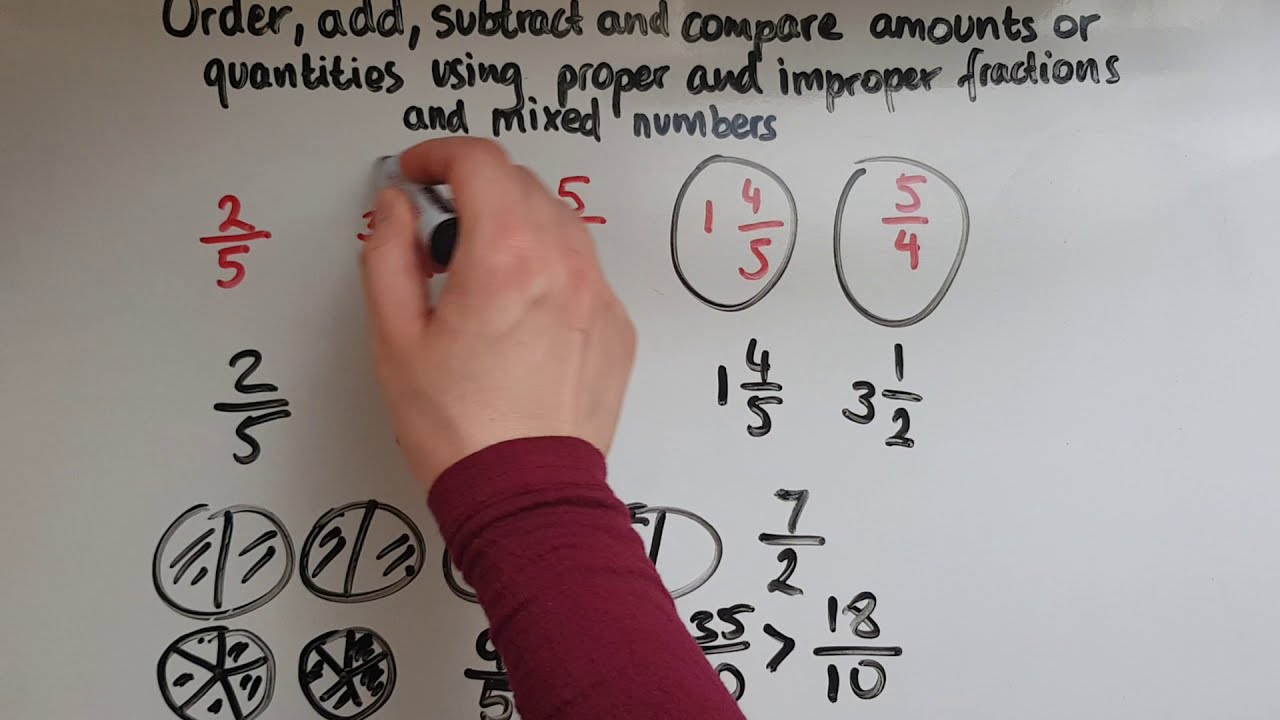 Order, add, subtract and compare amounts or
quantities using proper and improper fractions
and mixed numbers
2/5 3 5 1 4/5 5/4
2/5 1 4/5 3 1/2
7/2
9/5 35 > 18/10